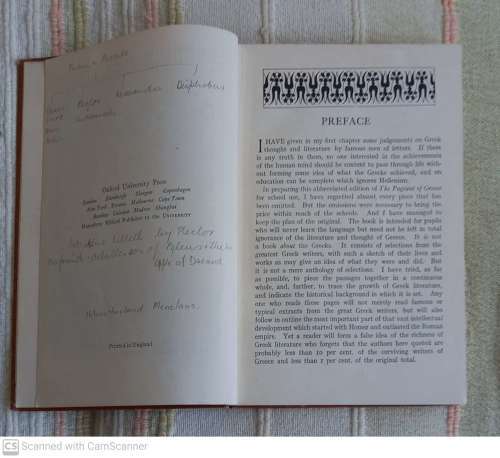 Hector Alexander Deiphobus
Oxford University Press
London Edinburgh Glasgow Copenhagen
New York Toronto Melbourne Cape Town
Bombay Calcutta Madras Shanghai
Humphrey Milford Publisher to the UNIVERSITY
killeth by Hector
of
of Dacand
Menelaus
Printed in England
PREFACE
I HAVE given in my first chapter some judgements on Greek
thought and literature by famous men of letters. If there
is any truth in them, no one interested in the achievements
of the human mind should be content to pass through life with-
out forming some idea of what the Greeks achieved, and no
education can be complete which ignores Hellenism.
In preparing this abbreviated edition of The Pageant of Greece
for school use, I have regretted almost every piece that has
been omitted. But the omissions were necessary to bring the
price within reach of the schools. And I have managed to
keep the plan of the original. The book is intended for pupils
who will never learn the language but need not be left in total
ignorance of the literature and thought of Greece. It is not
a book about the Greeks. It consists of selections from the
greatest Greek writers, with such a sketch of their lives and
works as may give an idea of what they were and did. But
it is not a mere anthology of selections. I have tried, as far
as possible, to piece the passages together in a continuous
whole, and, further, to trace the growth of Greek literature,
and indicate the historical background in which it is set. Any
one who reads these pages will not merely read famous or
typical extracts from the great Greek writers, but will also
follow in outline the most important part of that vast intellectual
development which started with Homer and outlasted the Roman
empire. Yet a reader will form a false idea of the richness of
Greek literature who forgets that the authors here quoted are
probably less than 10 per cent. of the surviving writers of
Greece and less than 1 per cent. of the original total.
CS Scanned with CamScanner